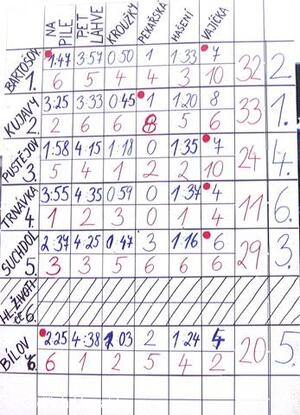 NA PILE PET LAHVE KROUŽKY PEKAŘSKÁ HAŠENÍ VAJÍČKA
BARTOŠOV. 1:47 3:57 0:50 1 1:33 7
1. 6 5 4 4 3 10 32 2.
KUJAVY 3:25 3:33 0:45 1 1:20 8
2. 2 6 6 8 5 6 33 1.
PUSTĚJOV 1:58 4:15 1:18 0 1:35 7
3 5 4 1 2 2 10 24 4.
TRNÁVKA 3:55 4:35 0:59 0 1:37 4
4. 1 2 3 0 1 4 11 6.
SUCHDOL 2:37 4:25 0:47 3 1:16 6
5. 3 3 5 6 6 6 29 3.
HL. ŽIVOTI
CE 6.
BÍLOV 2:25 4:38 1:03 2 1:24 4
6. 6 1 2 5 4 2 20 5.